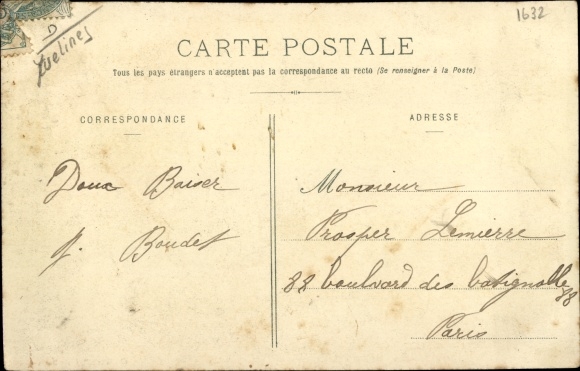 1632
Yvelines
CARTE POSTALE
Tous les pays étrangers n'acceptent pas la correspondance au recto (Se renseigner à la Poste)
CORRESPONDANCE
Doux Baiser
J. Boudet
ADRESSE
Monsieur
Prosper Lemierre
88 boulvard des batignolle 88
Paris